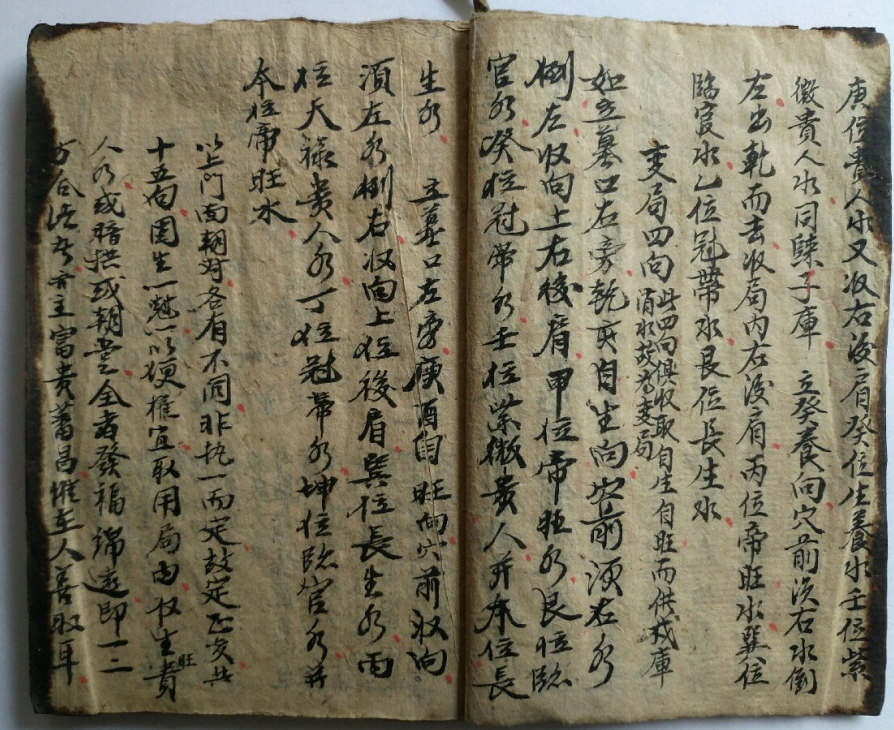 庚位貴人水又收右後肩癸位生養水壬位紫
微貴人水同歸子庫　立癸養向穴前須右水倒
左出乾而去收局內右後肩丙位帝旺水巽位
臨官水乙位冠帶水艮位長生水
變局四向此四向俱收取自生自旺而供戌庫
消水故為變局
如立墓口右旁乾亥自生向穴前須右水
倒左收向上右後肩甲位帝旺水艮位臨
官水癸位冠帶水壬位紫微貴人水并本位長
生水　立墓口左旁庚酉自旺向穴前收向
須左水倒右收向上位後肩巽位長生水丙
位天祿貴人水丁位冠帶水坤位臨官水并
本位帝旺水
以上門面朝對各有不同非執一而定故定正亥共
十五向圖生一㝷以便權宜取用局內收生旺貴
人水或暗拱或朝堂全者發福綿遠即一二
方合法者亦主富貴蕃昌惟在人善取耳